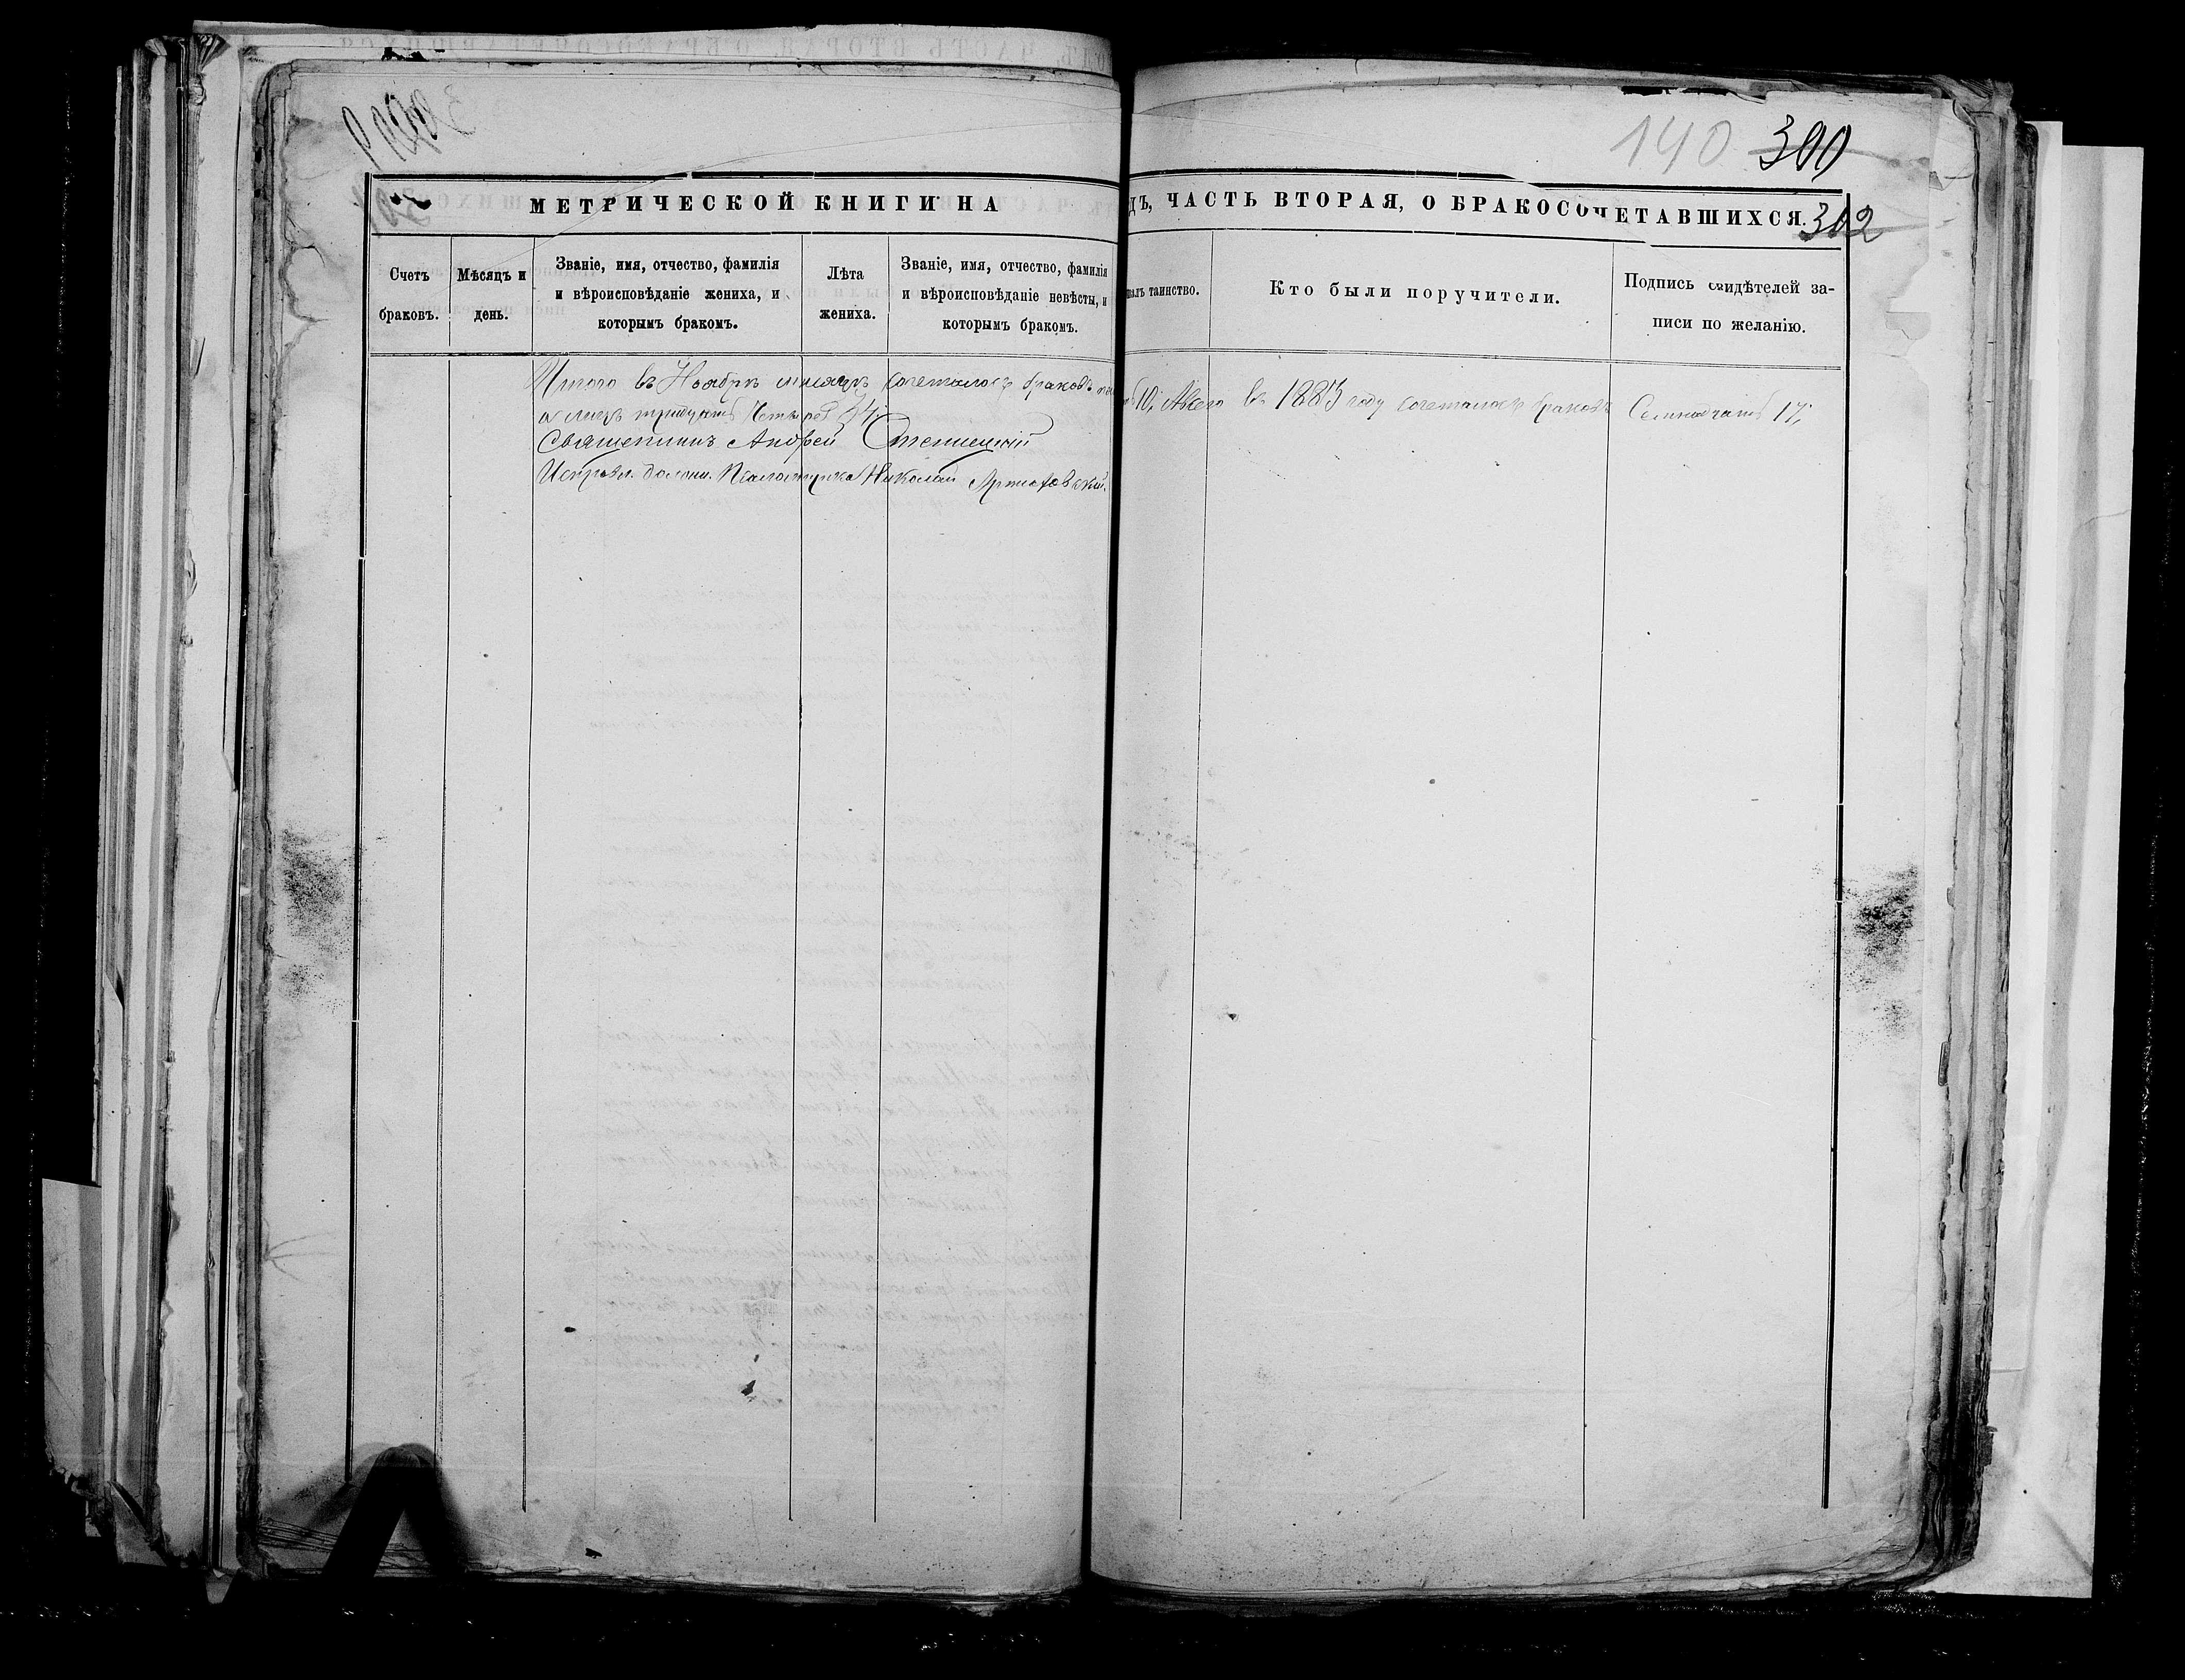 140 300
МЕТРИЧЕСКОЙ КНИГИ НА
ДЪ, ЧАСТЬ ВТОРАЯ, О БРАКОСОЧЕТАВШИХСЯ.
302
Счетъ
браковъ.
Мѣсяцъ и
день.
Званіе, имя, отчество, фамилія
и вѣроисповѣданіе жениха, и
которымъ бракомъ.
Лѣта
жениха.
Званіе, имя, отчество, фамилія
и вѣроисповѣданіе невѣсты, и
которымъ бракомъ.
таинство.
Кто были поручители.
Подпись свидѣтелей за-
писи по желанію.
Итого въ Ноябрѣ мѣсяцѣ сочеталось браковъ
а лицъ тридцать четыре 34
Священникъ Андрей
Исправл. должн. Псаломщика Николай
10, Всего въ 1883 году сочеталось браковъ Семнадцать 17,